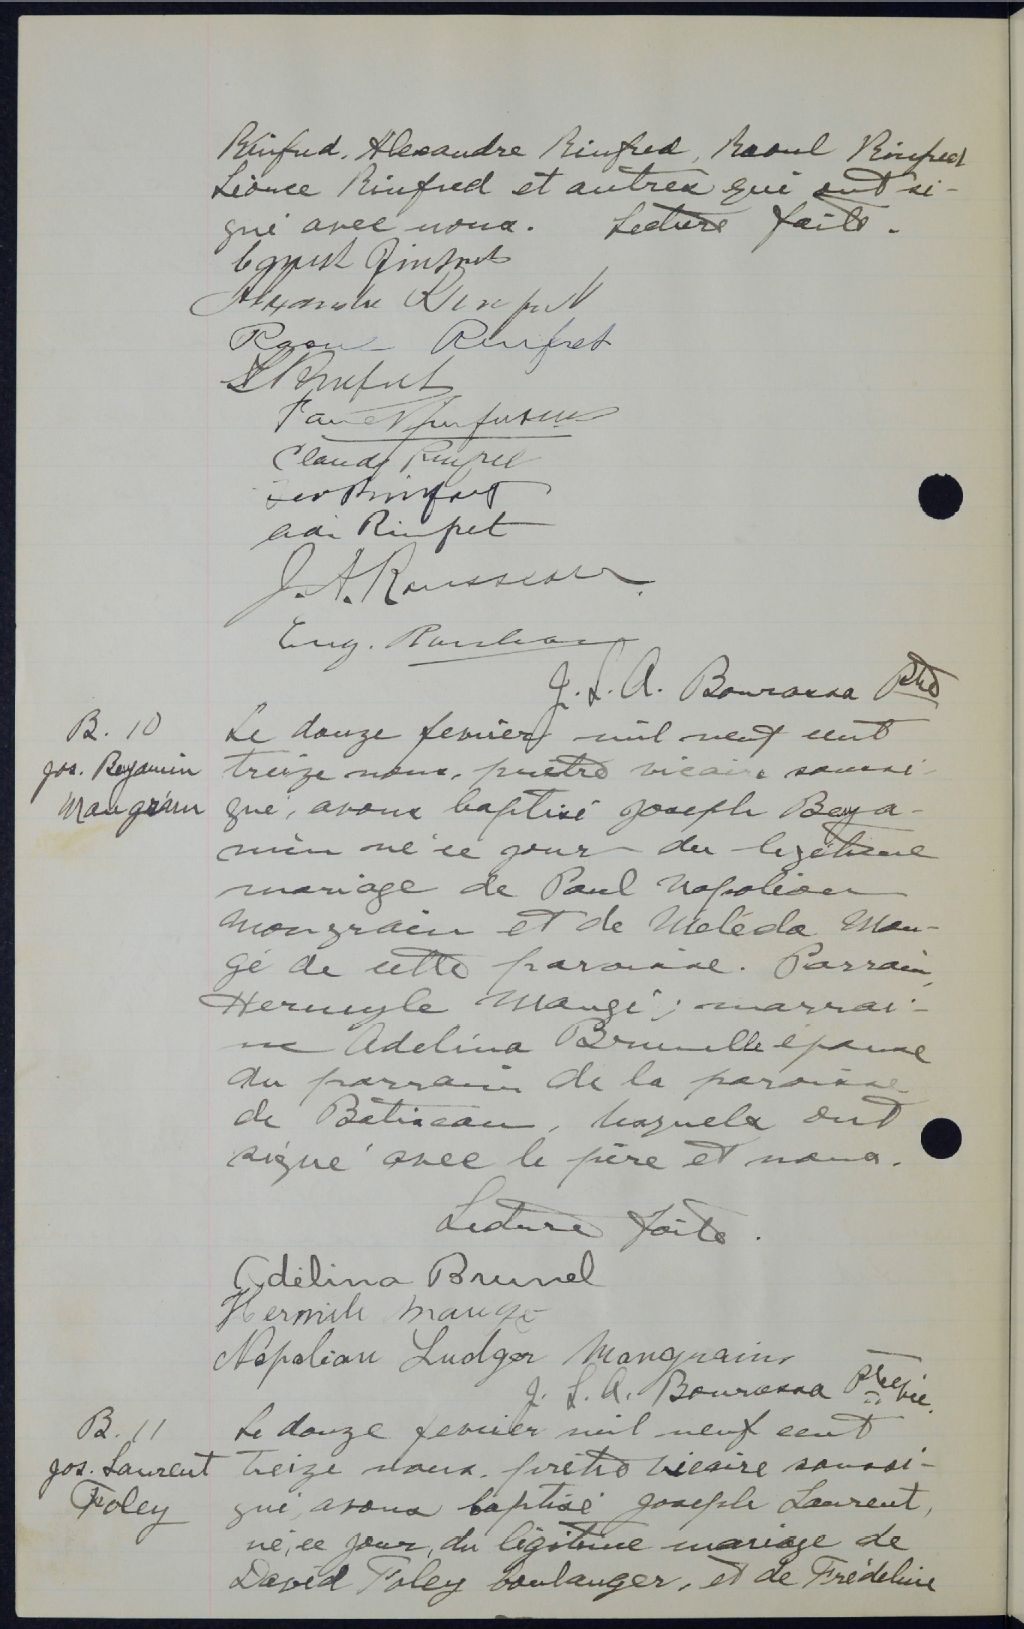 Rinfred, Alexandre Rinfred, Raoul Rinfred
Léonce Rinfred et autres qui ont si-
gné avec nous. Lecture faite.
Rinfret
Alexandre Rinfret
Raoul Rinfret
L Rinfret
Claude Rinfret
Rinfret
Rinfret
J. A. Rousseau
Eug. Rousseau
J. L. A. Bourassa Ptre
B. 10
Jos. Benjamin
Mangrain
Le douze fevrier mil neuf cent
treize nous, prêtre vicaire soussi-
gné, avons baptisé Joseph Benja-
min né ce jour du légitime
mariage de Paul Napoléon
Mongrain et de Méléda Mau-
gé de cette paroisse. Parrain,
Hermyle Maugé; marrai-
ne Adelina Brunelle épouse
du parrain de la paroisse
de Batiscan, lesquels ont
signé avec le père et nous.
Lecture faite.
Adélina Brunel
Hermile Mauge
Napoléon Ludger Mangrain
J. L. A. Bourassa Ptre vic.
B. 11
Jos. Laurent
Foley
Le douze fevrier mil neuf cent
treize nous, prêtre vicaire soussi-
gné, avons baptisé Joseph Laurent,
né, ce jour, du légitime mariage de
David Foley boulanger, et de Frédeline